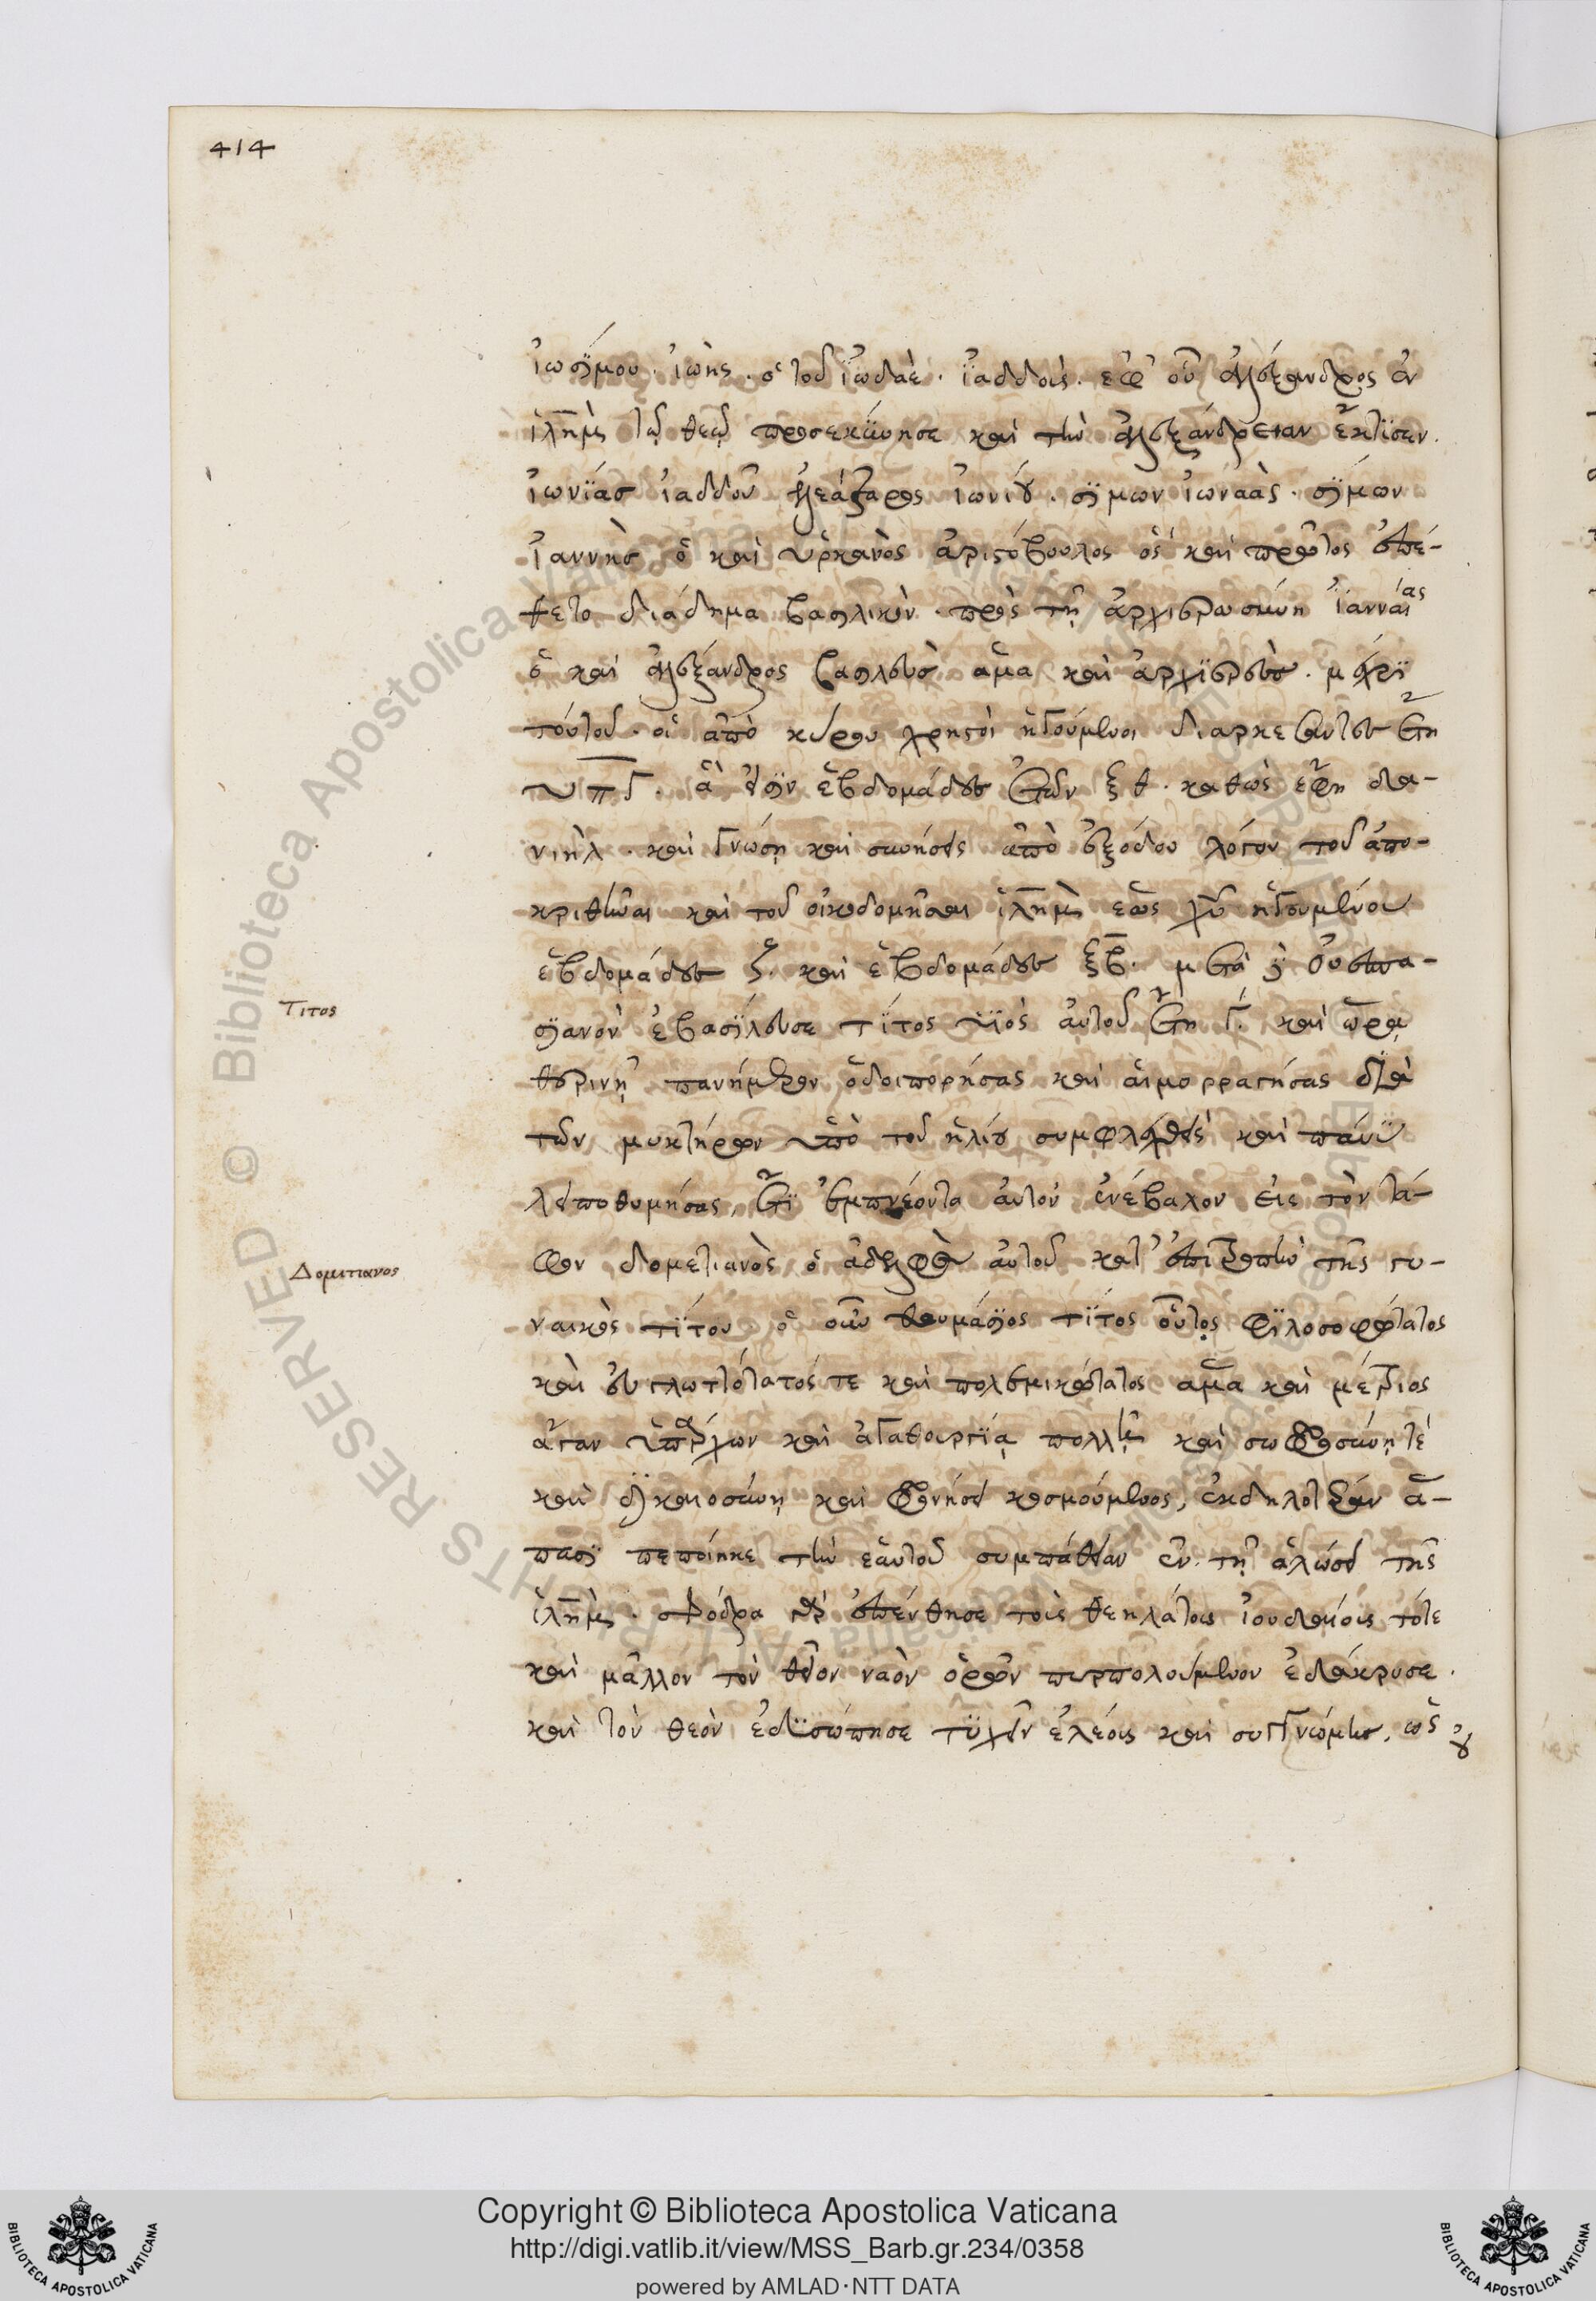 414
ἰωσήμου. ἰωὴς. ὁ τοῦ ἰωδαὲ. ἰαδδοὺς. ἐφ' οὗ ἀλέξανδρος ἐν
ἱλημ τῷ θεῷ προσεκύνησε καὶ τὴν ἀλεξάνδρειαν ἔκτισεν.
ἰωνίας ἰαδδοῦ ἐλεάζαρος ἰωνίου. σίμων ἰωναὰς. σίμων
ἰαννὴς ὁ καὶ ὑρκανὸς ἀριστόβουλος ὃς καὶ πρῶτος ἐπέ-
θετο διάδημα βασιλικὸν. πρὸς τῇ ἀρχιερωσύνη ἰανναίας
ὁ καὶ ἀλέξανδρος βασιλεὺς ἅμα καὶ ἀρχιερεὺς. μέχρι
τούτου. οἱ ἀπὸ κύρου χρηστοὶ ἡγούμενοι διαρκέσαντες ἔτη
υπγ. ἅ εἰσιν ἑβδομάδες ἐτῶν ξθ. καθὼς ἔφη δα-
νιὴλ. καὶ γνώση καὶ συνήσεις ἀπὸ ἐξόδου λόγον τοῦ ἀπο-
κριθῆναι καὶ τοῦ οἰκοδομῆσαι ἱλημ ἕως χυ ἡγουμένου
ἑβδομάδες ζ. καὶ ἑβδομάδες ξβ. μετὰ δὲ οὐεσπα-
σιανὸν ἐβασίλευσε τίτος υἱὸς αὐτοῦ ἔτη γ. καὶ ὥρᾳ
Τιτος
θερινῇ πανήμερον ὁδοιπορήσας καὶ αἱμορραγήσας διὰ
τῶν μυκτήρων ὑπὸ τοῦ ἡλίου συμφλεχθεὶς καὶ πάνυ
λειποθυμήσας, ἔτι ἐμπνέοντα αὐτὸν ἐνέβαλον εἰς τὸν τά-
φον δομετιανὸς ὁ ἀδελφὸς αὐτοῦ κατ' ἐπιτροπὴν τῆς γυ-
Δομιτιανος
ναικὸς τίτου ὁ οὖν θαυμάσιος τίτος οὗτος φιλοσοφώτατος
καὶ εὐγλωττότατός τε καὶ πολεμικώτατος ἅμα καὶ μέτριος
ἄγαν ὑπάρχων καὶ ἀγαθουργίᾳ πολλῇ καὶ σωφροσύνῃ τέ
καὶ δικαιοσύνῃ καὶ φρονήσει κοσμούμενος, ἐκδηλοτέραν ἅ-
πασι πεποίηκε τὴν ἑαυτοῦ συμπάθειαν ἐν τῇ ἁλώσει τῆς
ἱλημ. σφόδρα γὰρ ἐπένθησε τοῖς θεηλάτοις ἰουδαίοις τότε
καὶ μᾶλλον τὸν θεῖον ναὸν ὁρῶν πυρπολούμενον ἐδάκρυσε.
καὶ τὸν θεὸν ἐδυσώπησε τυχεῖν ἐλέους καὶ συγγνώμης, ὡς οὐ
Copyright © Biblioteca Apostolica Vaticana
http://digi.vatlib.it/view/MSS_Barb.gr.234/0358
powered by AMLAD·NTT DATA
BIBLIOTECA APOSTOLICA VATICANA
BIBLIOTECA APOSTOLICA VATICANA